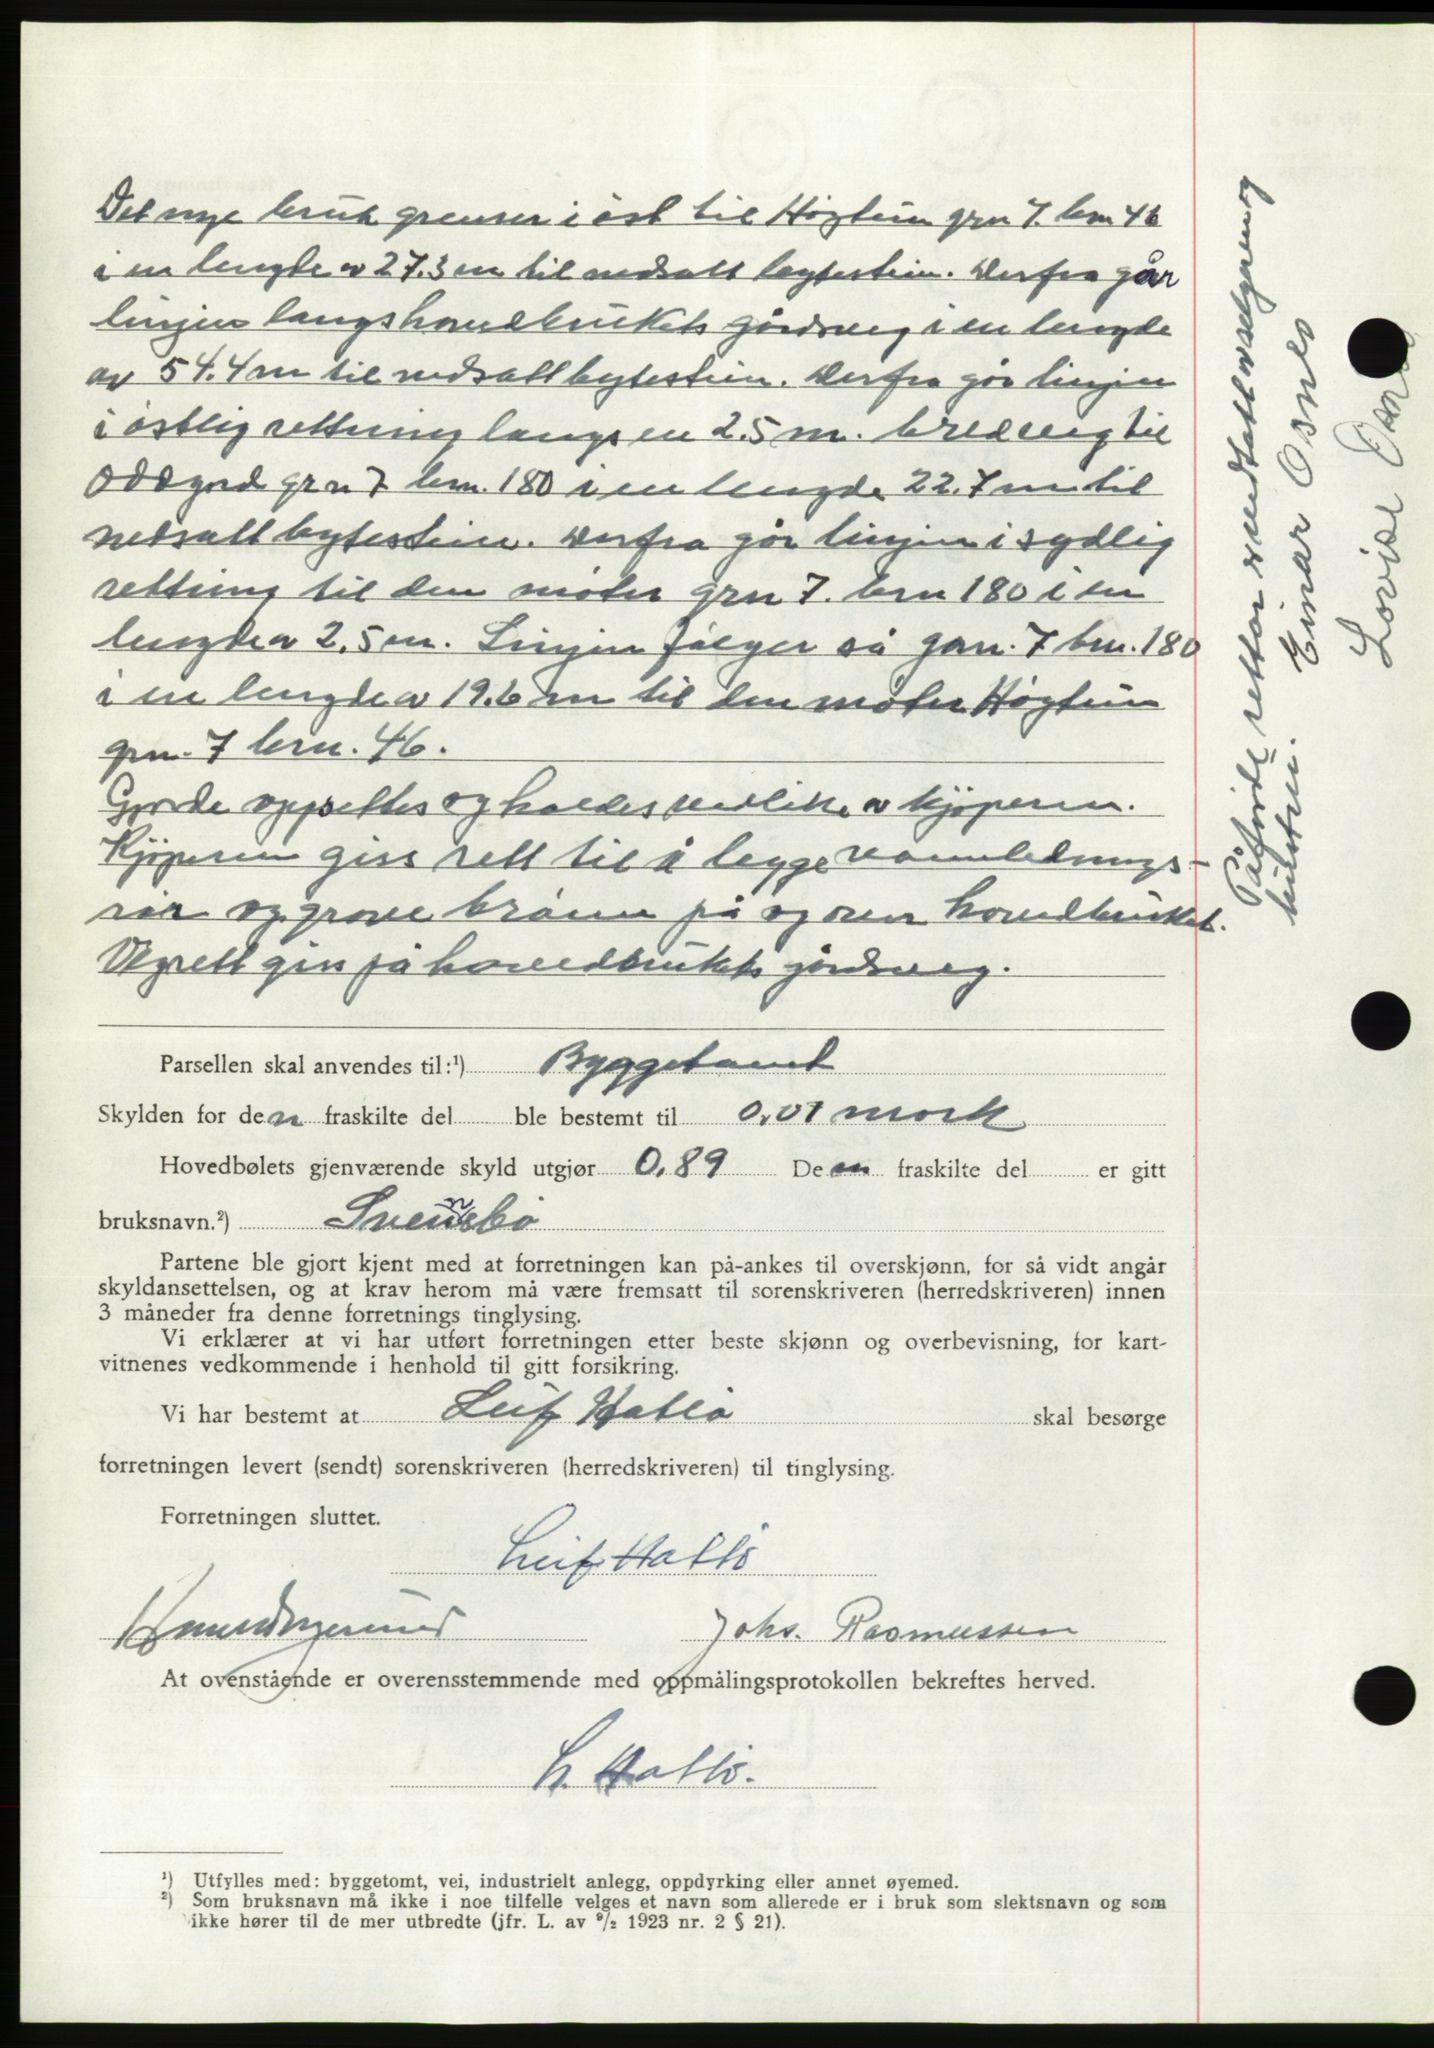 Det nye bruk grenser i öst til Högtun grn 7. brn 46
i en lengde av 27.3 m til nedsatt bytestein. Derfra går
linjen langs hovedbrukets gårdsveg i en lengde
av 54.4 m til nedsatt bytestein. Derfra går linjen
i östlig rettning langs en 2.5 m. bred veg til
Oddgard grn 7 brn. 180 i en lengde 22.7 m til
nedsatt bytestein. Derfra går linjen i sydlig
rettning til den möter grn 7. brn 180 i en
lengde av 2.5 m. Linjen fölger så grn. 7 brn. 180
i en lengde av 19.6 m til den möter Högtun
grn. 7 brn. 46.
Gjerde oppsettes og holdes vedlike av kjöperen.
Kjöperen giss rett til å legge vannlednings-
rör og grave brönn på og over hovedbruket.
Vegrett giss på hovedbrukets gårdsveg.
Parsellen skal anvendes til:¹) Byggetomt
Skylden for den fraskilte del ble bestemt til 0.01 mork
Hovedbølets gjenværende skyld utgjør 0.89 Den fraskilte del er gitt
bruksnavn.²) Svensbö
Partene ble gjort kjent med at forretningen kan på-ankes til overskjønn, for så vidt angår
skyldansettelsen, og at krav herom må være fremsatt til sorenskriveren (herredskriveren) innen
3 måneder fra denne forretnings tinglysing.
Vi erklærer at vi har utført forretningen etter beste skjønn og overbevisning, for kart-
vitnenes vedkommende i henhold til gitt forsikring.
Vi har bestemt at Leif Hatlö skal besørge
forretningen levert (sendt) sorenskriveren (herredskriveren) til tinglysing.
Forretningen sluttet.
Leif Hatlö
Johs. Rasmussen
At ovenstående er overensstemmende med oppmålingsprotokollen bekreftes herved.
L. Hatlö.
¹) Utfylles med: byggetomt, vei, industrielt anlegg, oppdyrking eller annet øyemed.
²) Som bruksnavn må ikke i noe tilfelle velges et navn som allerede er i bruk som slektsnavn og som
ikke hører til de mer utbredte (jfr. L. av ⁹/₂ 1923 nr. 2 § 21).
Påförde rettor vedtatt av selgeren og
hustru. Einar Osnes
Lovise